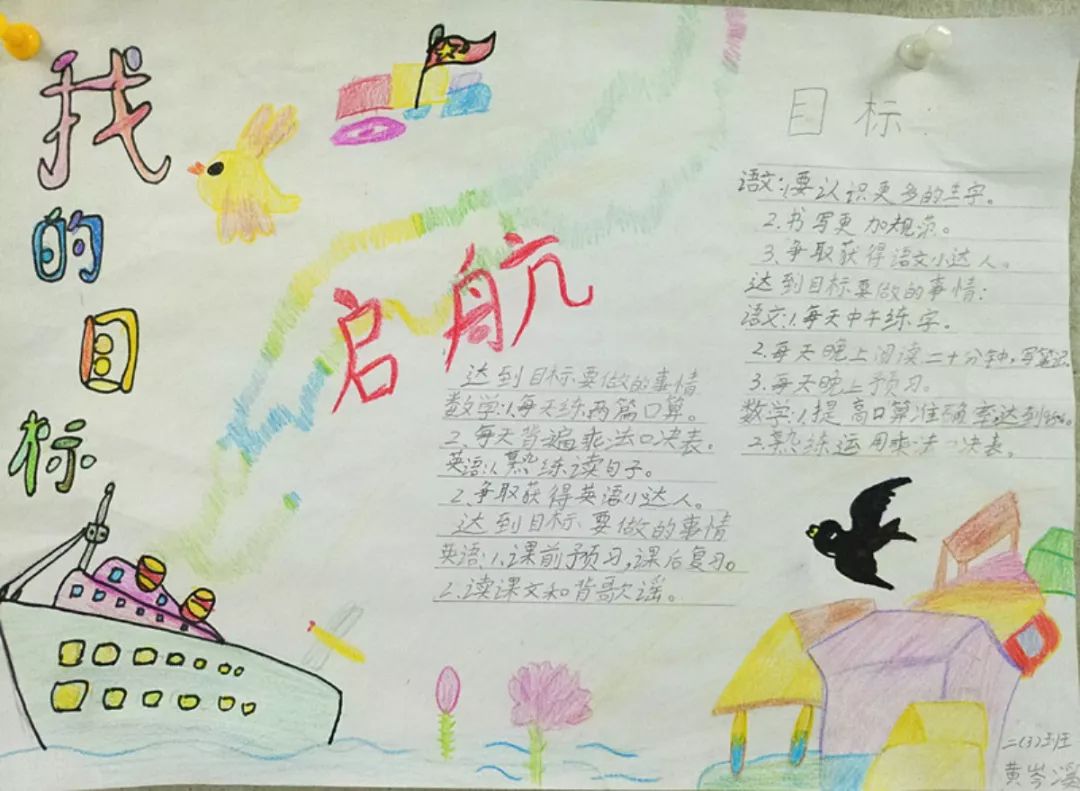 我的目标
启航
目标：
语文：1.要认识更多的生字。
2.书写更加规范。
3.争取获得语文小达人。
达到目标要做的事情：
语文：1.每天中午练字。
2.每天晚上阅读二十分钟，写笔记
3.每天晚上预习。
数学：1.提高口算准确率达到95%。
2.熟练运用乘法口决表。
达到目标要做的事情
数学：1.每天练两篇口算。
2.每天背遍乘法口决表。
英语：1.熟练读句子。
2.争取获得英语小达人。
达到目标要做的事情
英语：1.课前预习，课后复习。
2.读课文和背歌谣。
二(3)班
黄岑溪